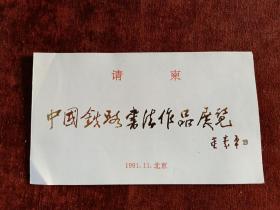 请柬
中國鉄路書法作品展覧
1991.11.北京